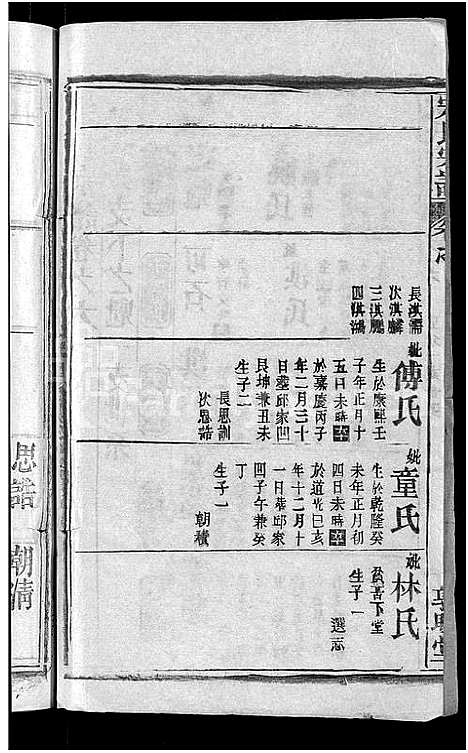 長淇濡
次淇麟
三淇鵬
四淇鴻
妣傅氏
生於康熙壬
子年正月十
五日未時卒
於嘉慶丙子
年二月三十
日塟邱家凹
艮坤兼丑未
生子二
長思訓
次思誥
妣童氏
生於乾隆癸
未年正月初
四日未時卒
於道光己亥
年十二月十
一日塟邱家
凹子午兼癸
丁
生子一
朝積
妣林氏
生子一
選志
思誥
朝清